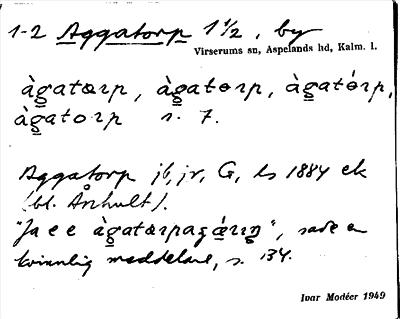 1-2 Aggatorp 1 1/2, by
Virserums sn, Aspelands hd, Kalm. l.
àg̲atɵrp, àg̲atɵrp, àg̲atórp,
àg̲atorp s. 7.
Aggatorp jb, jr, G, ls 1884 ek
(bl. Århult).
"Ja e e àg̲atɵrpaʒä̀rıŋ", sade en
kvinnlig meddelare, s. 134.
Ivar Modéer 1949